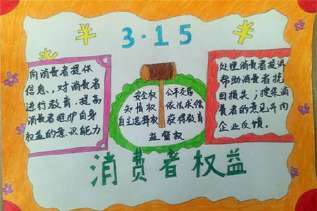 3·15
向消费者提供
信息,对消费者
进行教育,提高
消费者维护自身
权益的意识能力
安全权 公平交易
知情权 依法求偿
自主选择权 获得教育
监督权
处理消费者投诉
帮助消费者挽
回损失;搜集消
费者的意见并向
企业反馈。
消费者权益